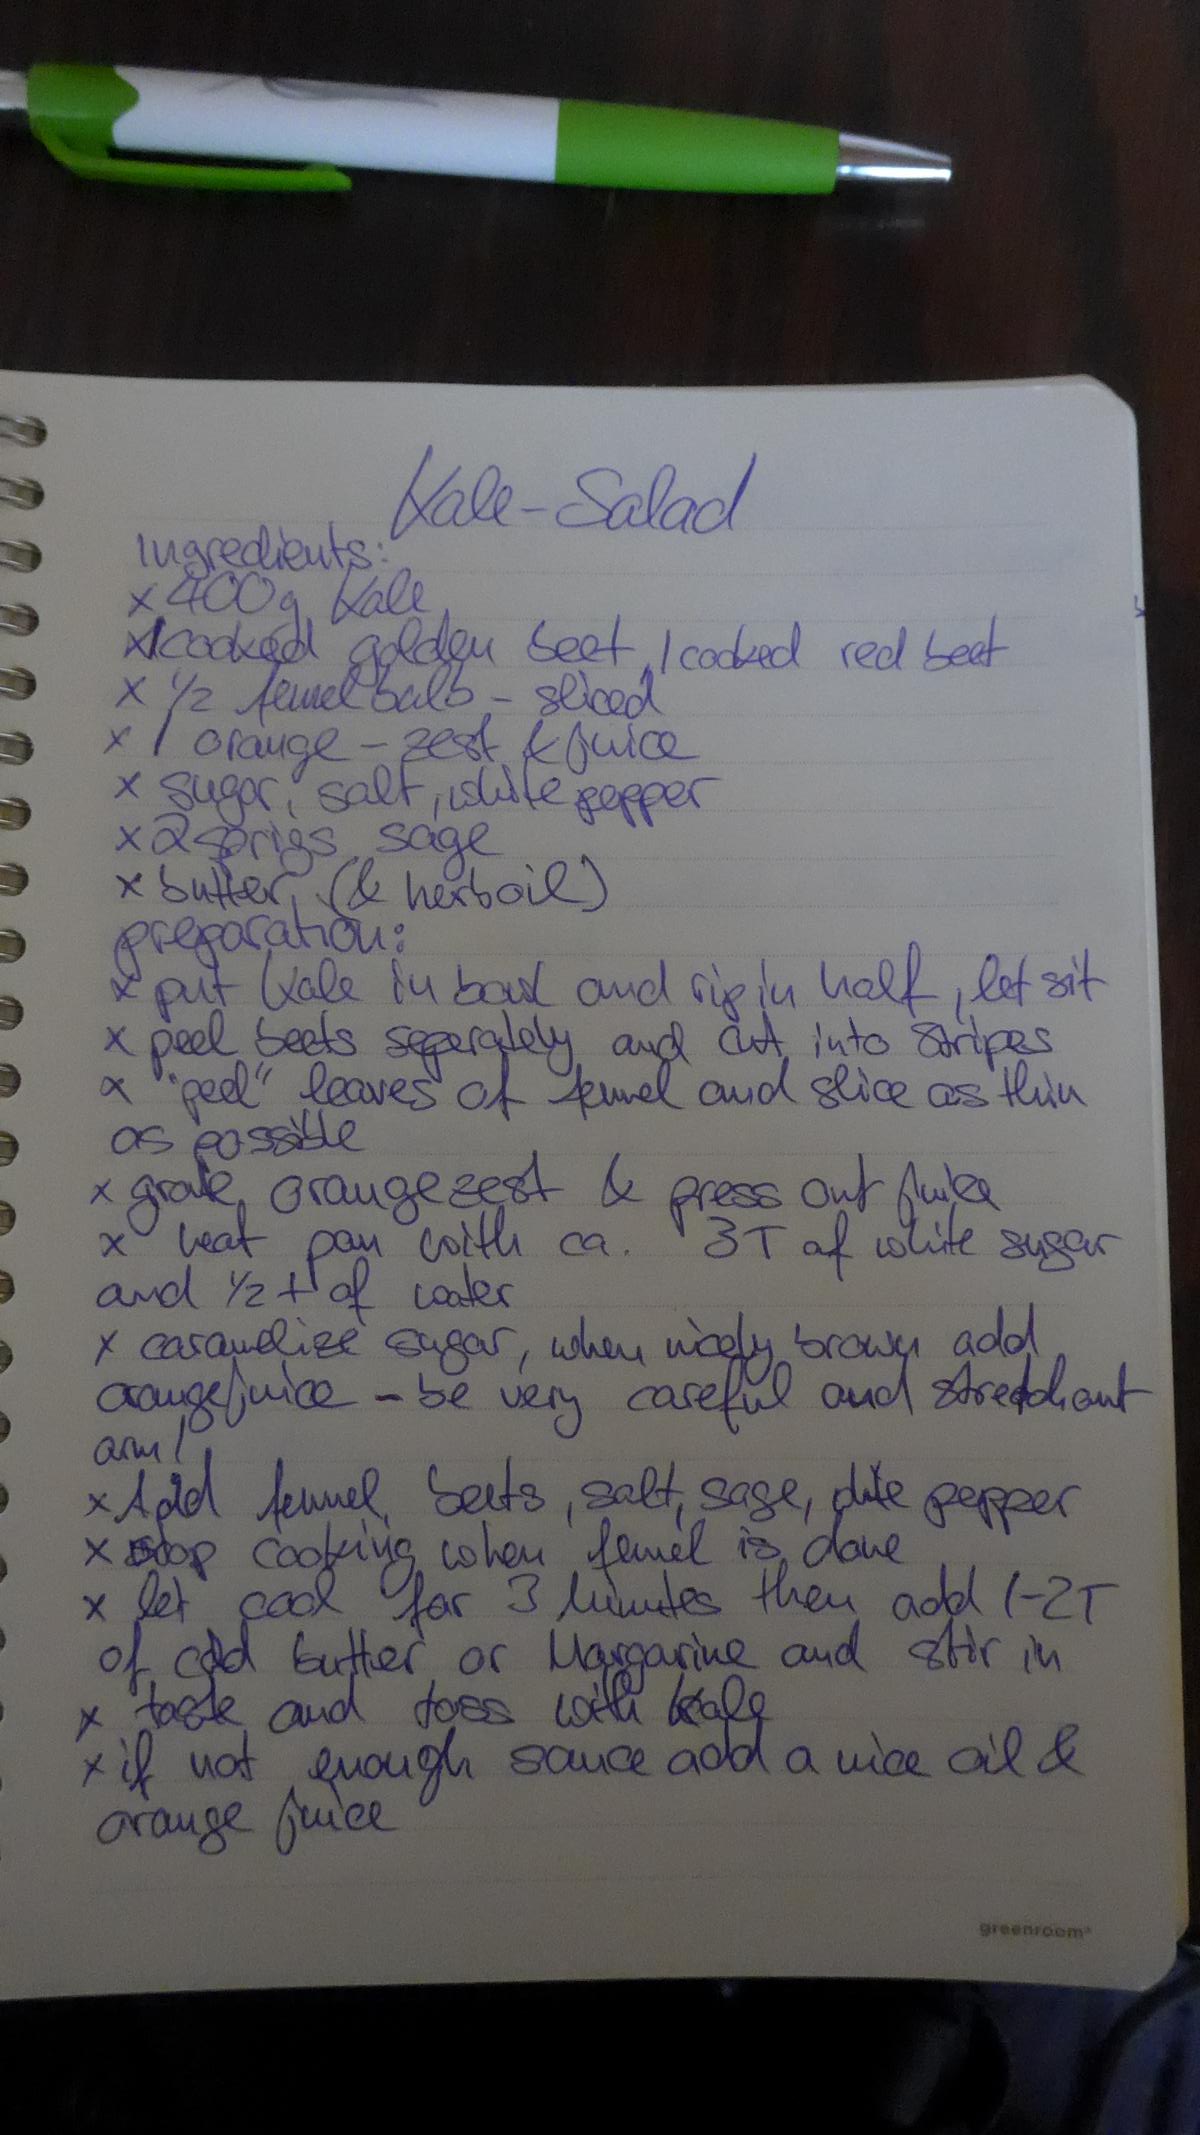 Kale-Salad
Ingredients:
x 400g Kale
x 1 cooked golden beet, 1 cooked red beet
x 1/2 fennel bulb - sliced
x 1 orange - zest & juice
x sugar, salt, white pepper
x 2 sprigs sage
x butter, (& herboil)
preparation:
x put Kale in bowl and rip in half, let sit
x peel beets seperately and cut into stripes
x "peel" leaves of fennel and slice as thin
as possible
x grate orangezest & press out juice
x heat pan with ca. 3T of white sugar
and 1/2 t of water
x caramelize sugar, when nicely brown add
orangejuice - be very careful and stretch out
arm!
x Add fennel, beets, salt, sage, white pepper
x stop cooking when fennel is done
x let cool for 3 Minutes then add 1-2T
of cold butter or Margarine and stir in
x taste and toss with Kale
x if not enough sauce add a nice oil &
orange juice
greenroom